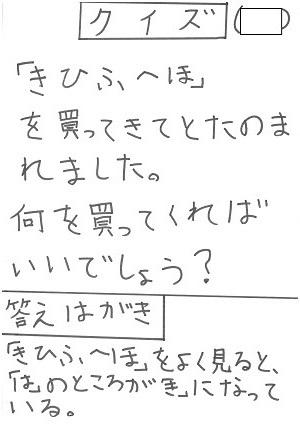 クイズ
「きひふへほ」
を買ってきてとたのま
れました。
何を買ってくれば
いいでしょう？
答えはがき
「きひふへほ」をよく見ると、
「は」のところが「き」になって
いる。